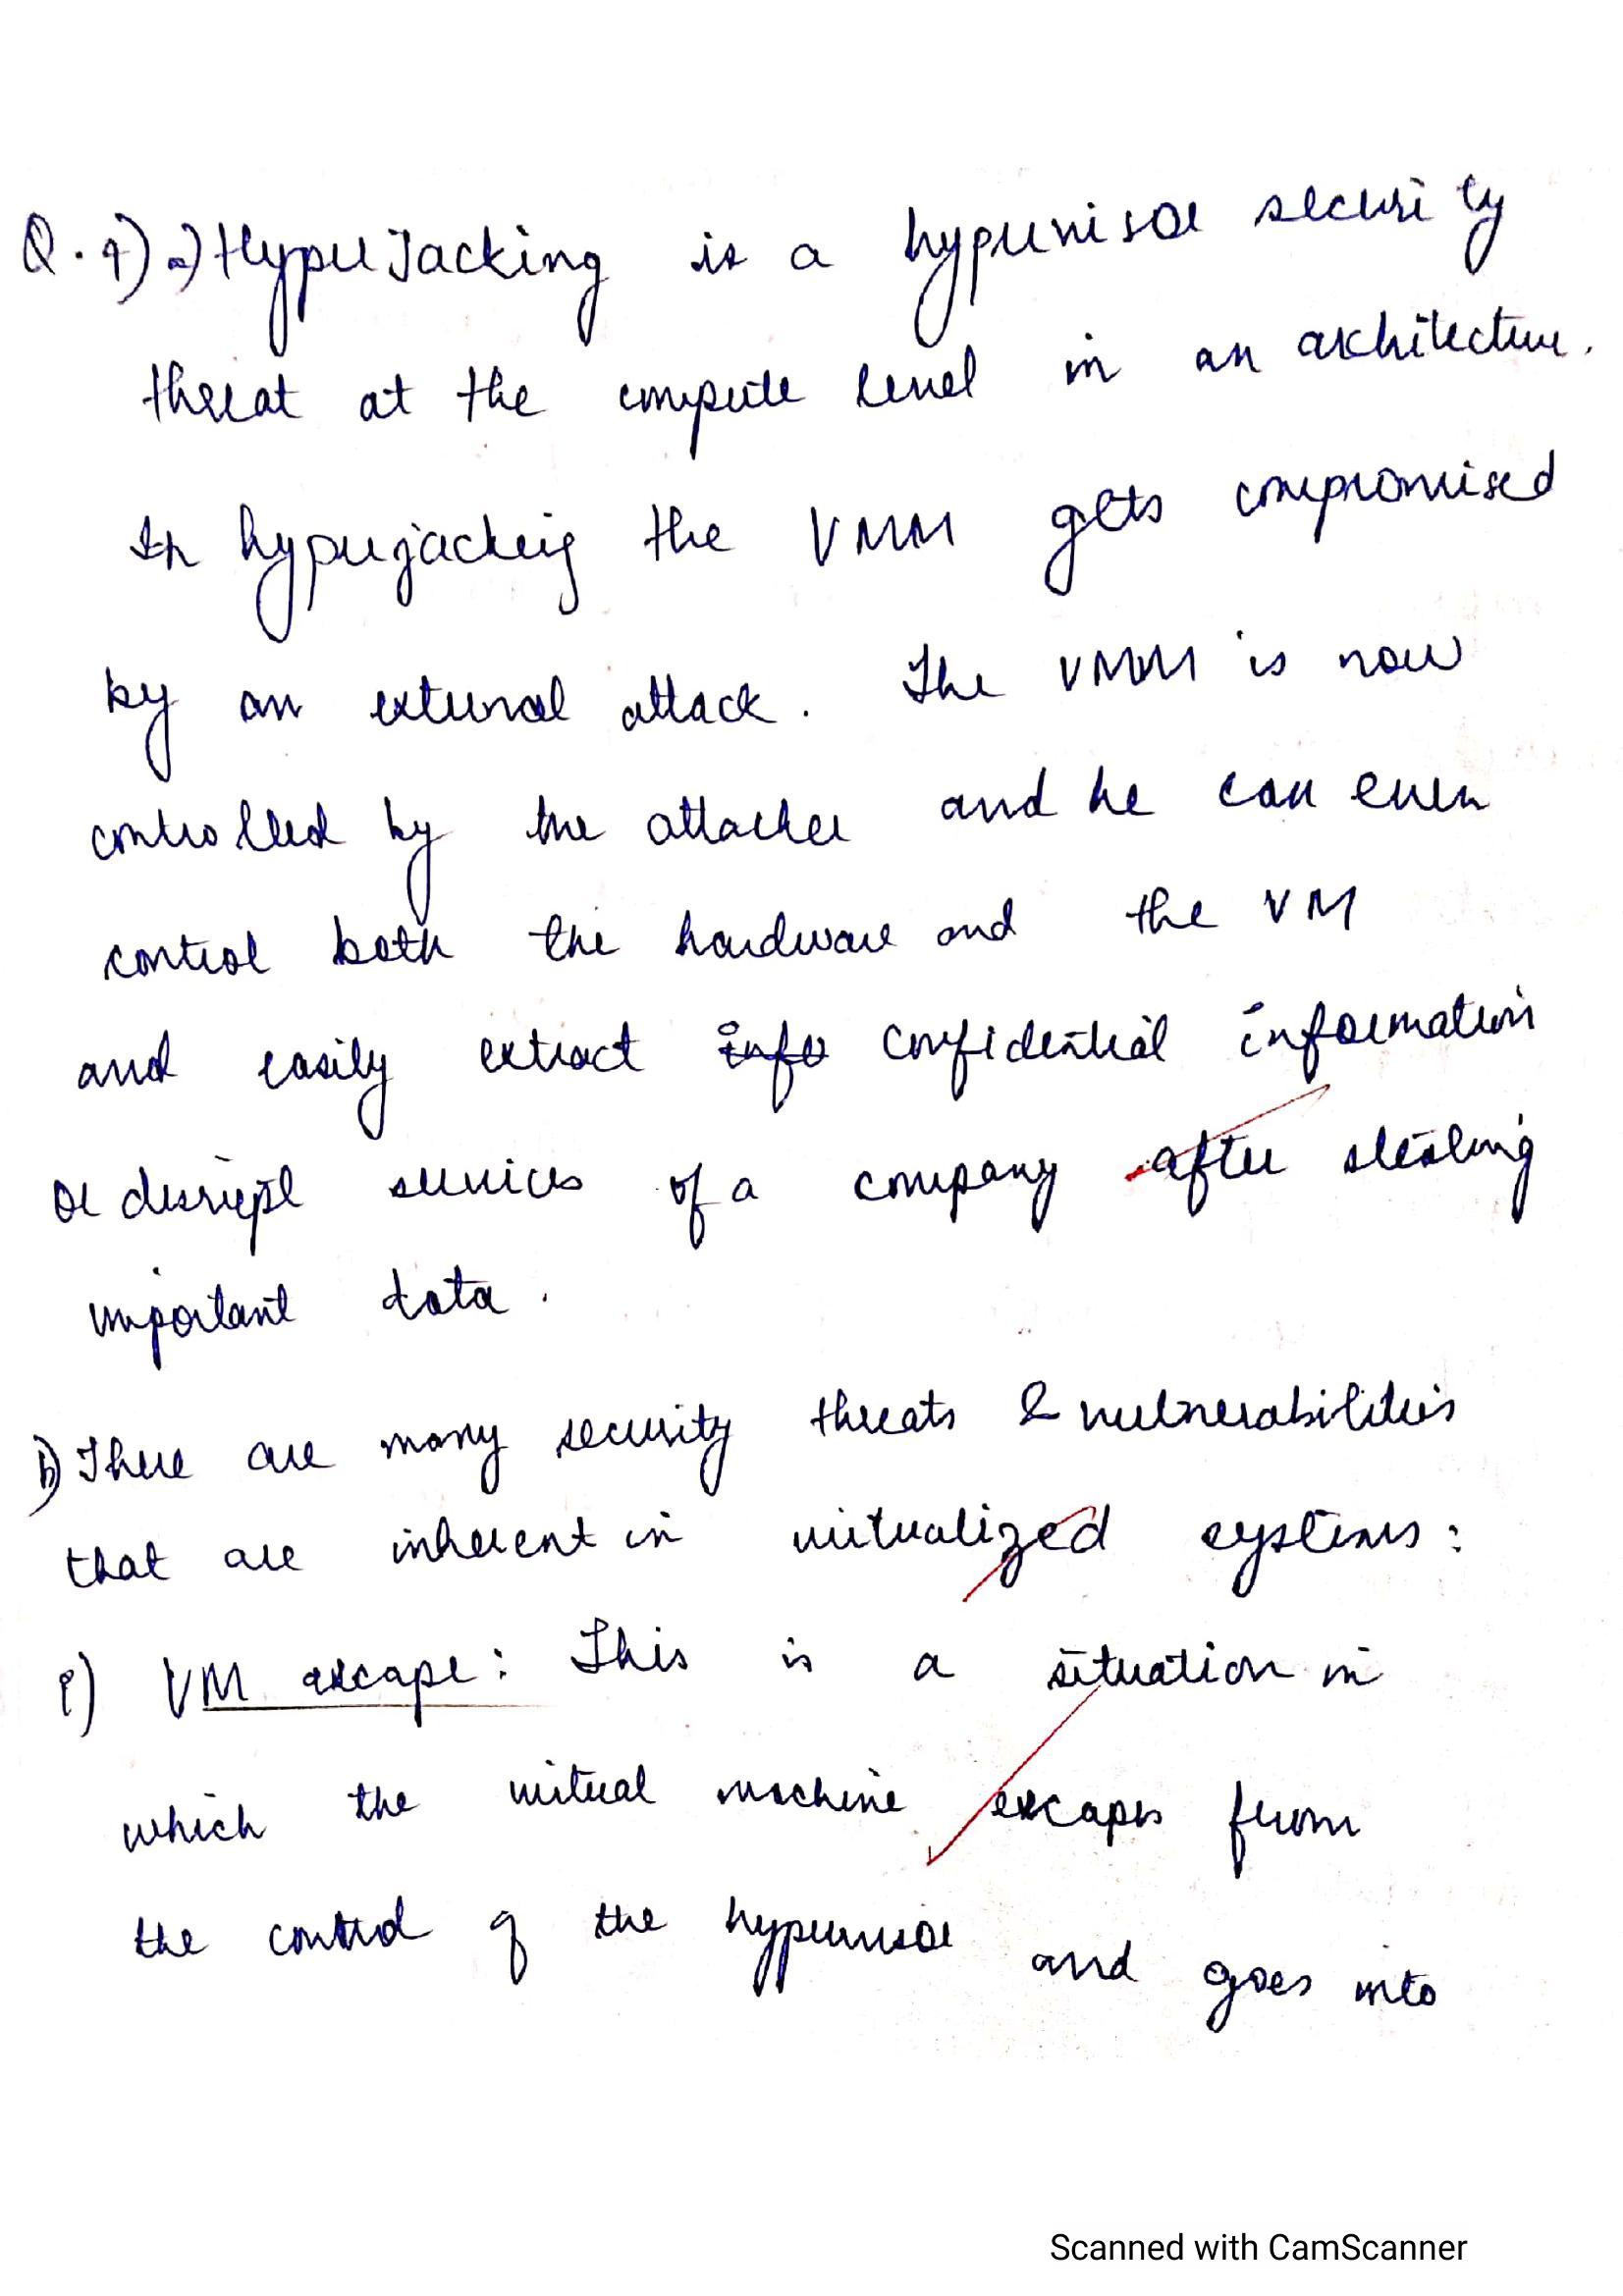 Q.4) a) HyperJacking is a hypervisor security
threat at the compute level in an architecture.
In hyperjacking the VMM gets compromised
by an external attack. The VMM is now
controlled by the attacker and he can even
control both the hardware and the VM
and easily extract info confidential information
or disrupt services of a company after stealing
important data.
b) There are many security threats & vulnerabilities
that are inherent in virtualized systems:
i) VM escape: This is a situation in
which the virtual machine escapes from
the control of the hypervisor and goes into
Scanned with CamScanner